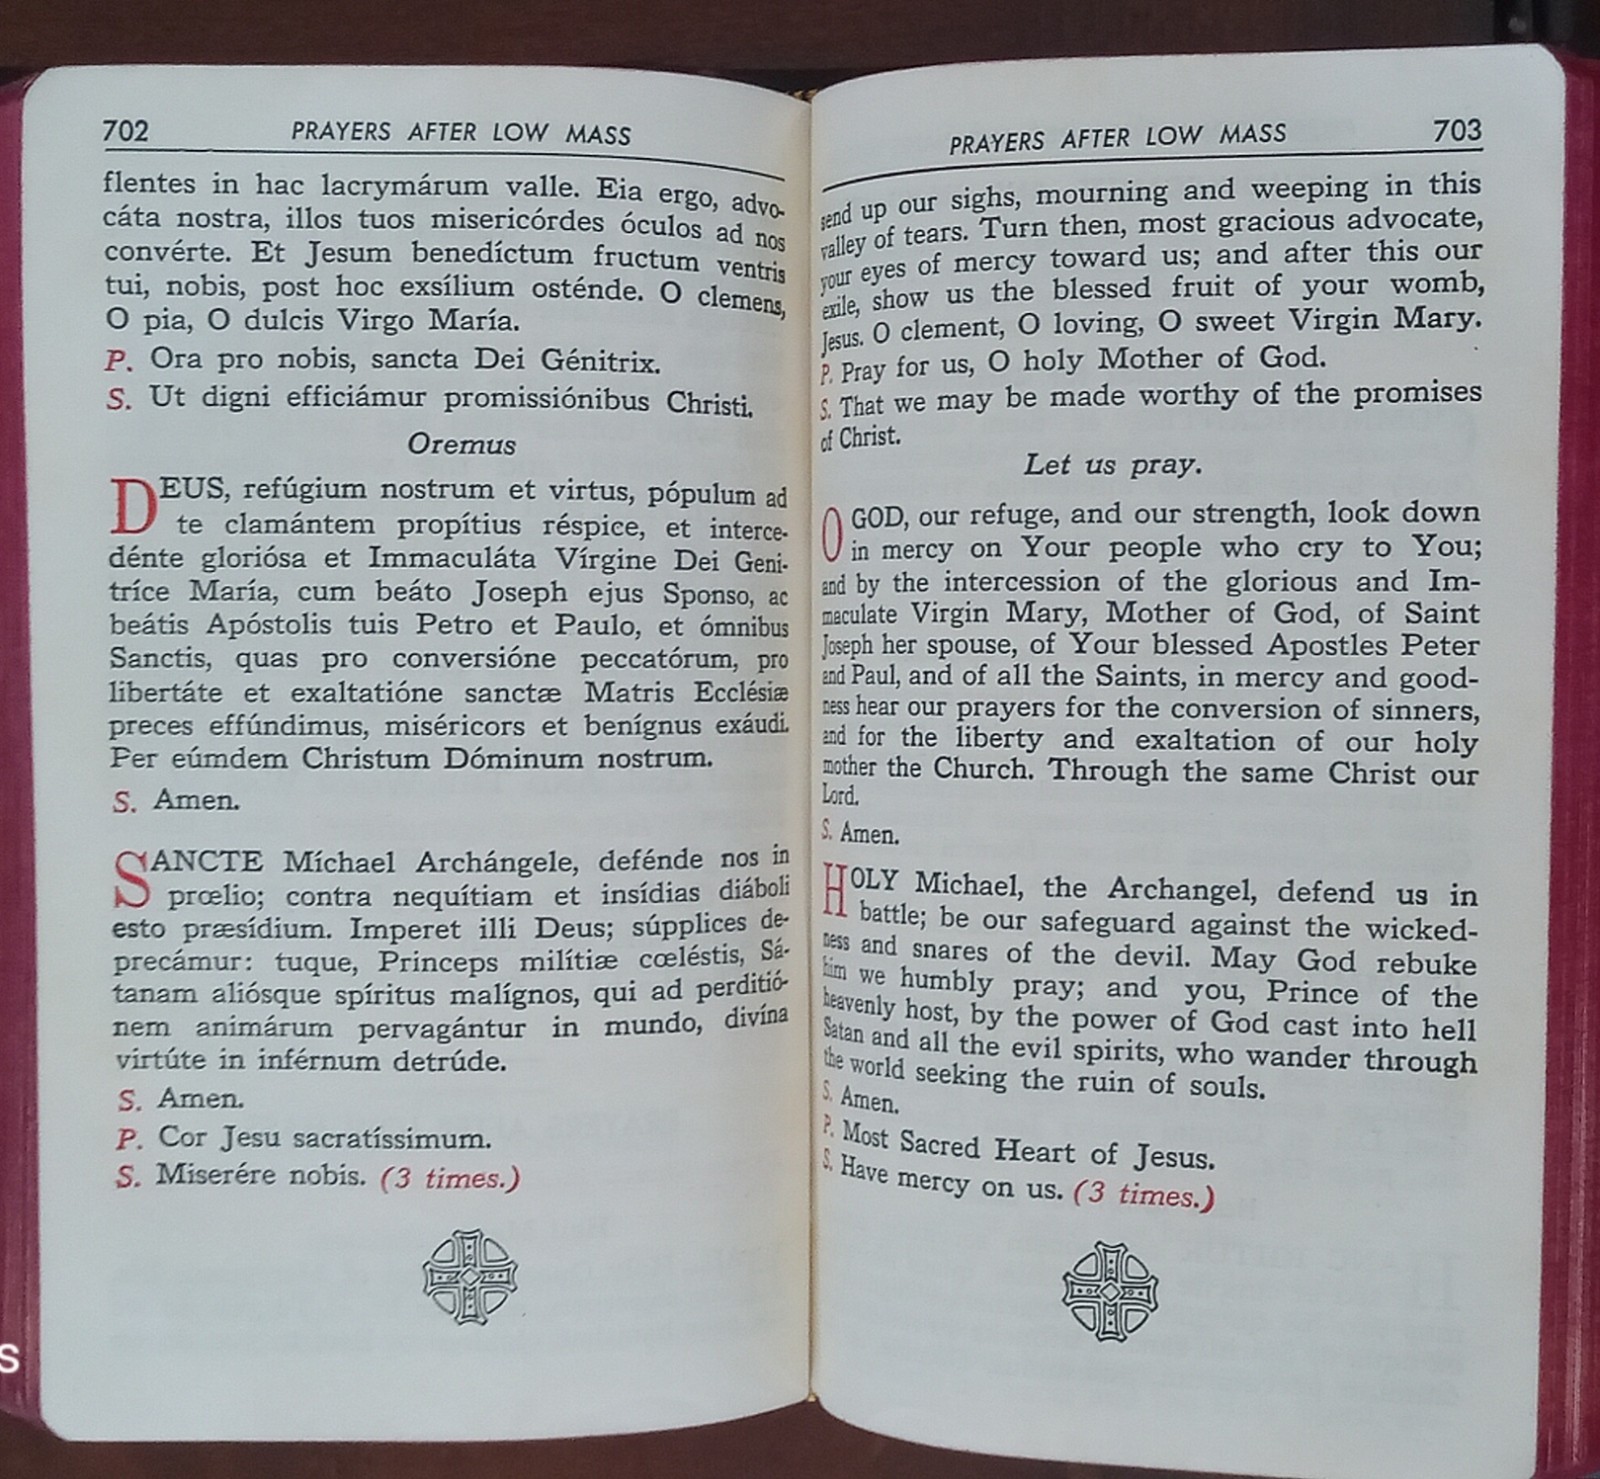 702 PRAYERS AFTER LOW MASS
flentes in hac lacrymárum valle. Eia ergo, advo-
cáta nostra, illos tuos misericórdes óculos ad nos
convérte. Et Jesum benedíctum fructum ventris
tui, nobis, post hoc exsílium osténde. O clemens,
O pia, O dulcis Virgo María.
P. Ora pro nobis, sancta Dei Génitrix.
S. Ut digni efficiámur promissiónibus Christi.
Oremus
DEUS, refúgium nostrum et virtus, pópulum ad
te clamántem propítius réspice, et interce-
dénte gloriósa et Immaculáta Vírgine Dei Geni-
tríce María, cum beáto Joseph ejus Sponso, ac
beátis Apóstolis tuis Petro et Paulo, et ómnibus
Sanctis, quas pro conversióne peccatórum, pro
libertáte et exaltatióne sanctæ Matris Ecclésiæ
preces effúndimus, miséricors et benígnus exáudi.
Per eúmdem Christum Dóminum nostrum.
S. Amen.
SANCTE Míchael Archángele, defénde nos in
prœlio; contra nequítiam et insídias diáboli
esto præsídium. Imperet illi Deus; súpplices de-
precámur: tuque, Princeps milítiæ cœléstis, Sá-
tanam aliósque spíritus malígnos, qui ad perditió-
nem animárum pervagántur in mundo, divína
virtúte in inférnum detrúde.
S. Amen.
P. Cor Jesu sacratíssimum.
S. Miserére nobis. (3 times.)
s
PRAYERS AFTER LOW MASS 703
send up our sighs, mourning and weeping in this
valley of tears. Turn then, most gracious advocate,
your eyes of mercy toward us; and after this our
exile, show us the blessed fruit of your womb,
Jesus. O clement, O loving, O sweet Virgin Mary.
P. Pray for us, O holy Mother of God.
S. That we may be made worthy of the promises
of Christ.
Let us pray.
O GOD, our refuge, and our strength, look down
in mercy on Your people who cry to You;
and by the intercession of the glorious and Im-
maculate Virgin Mary, Mother of God, of Saint
Joseph her spouse, of Your blessed Apostles Peter
and Paul, and of all the Saints, in mercy and good-
ness hear our prayers for the conversion of sinners,
and for the liberty and exaltation of our holy
mother the Church. Through the same Christ our
Lord.
S. Amen.
HOLY Michael, the Archangel, defend us in
battle; be our safeguard against the wicked-
ness and snares of the devil. May God rebuke
him we humbly pray; and you, Prince of the
heavenly host, by the power of God cast into hell
Satan and all the evil spirits, who wander through
the world seeking the ruin of souls.
S. Amen.
P. Most Sacred Heart of Jesus.
S. Have mercy on us. (3 times.)